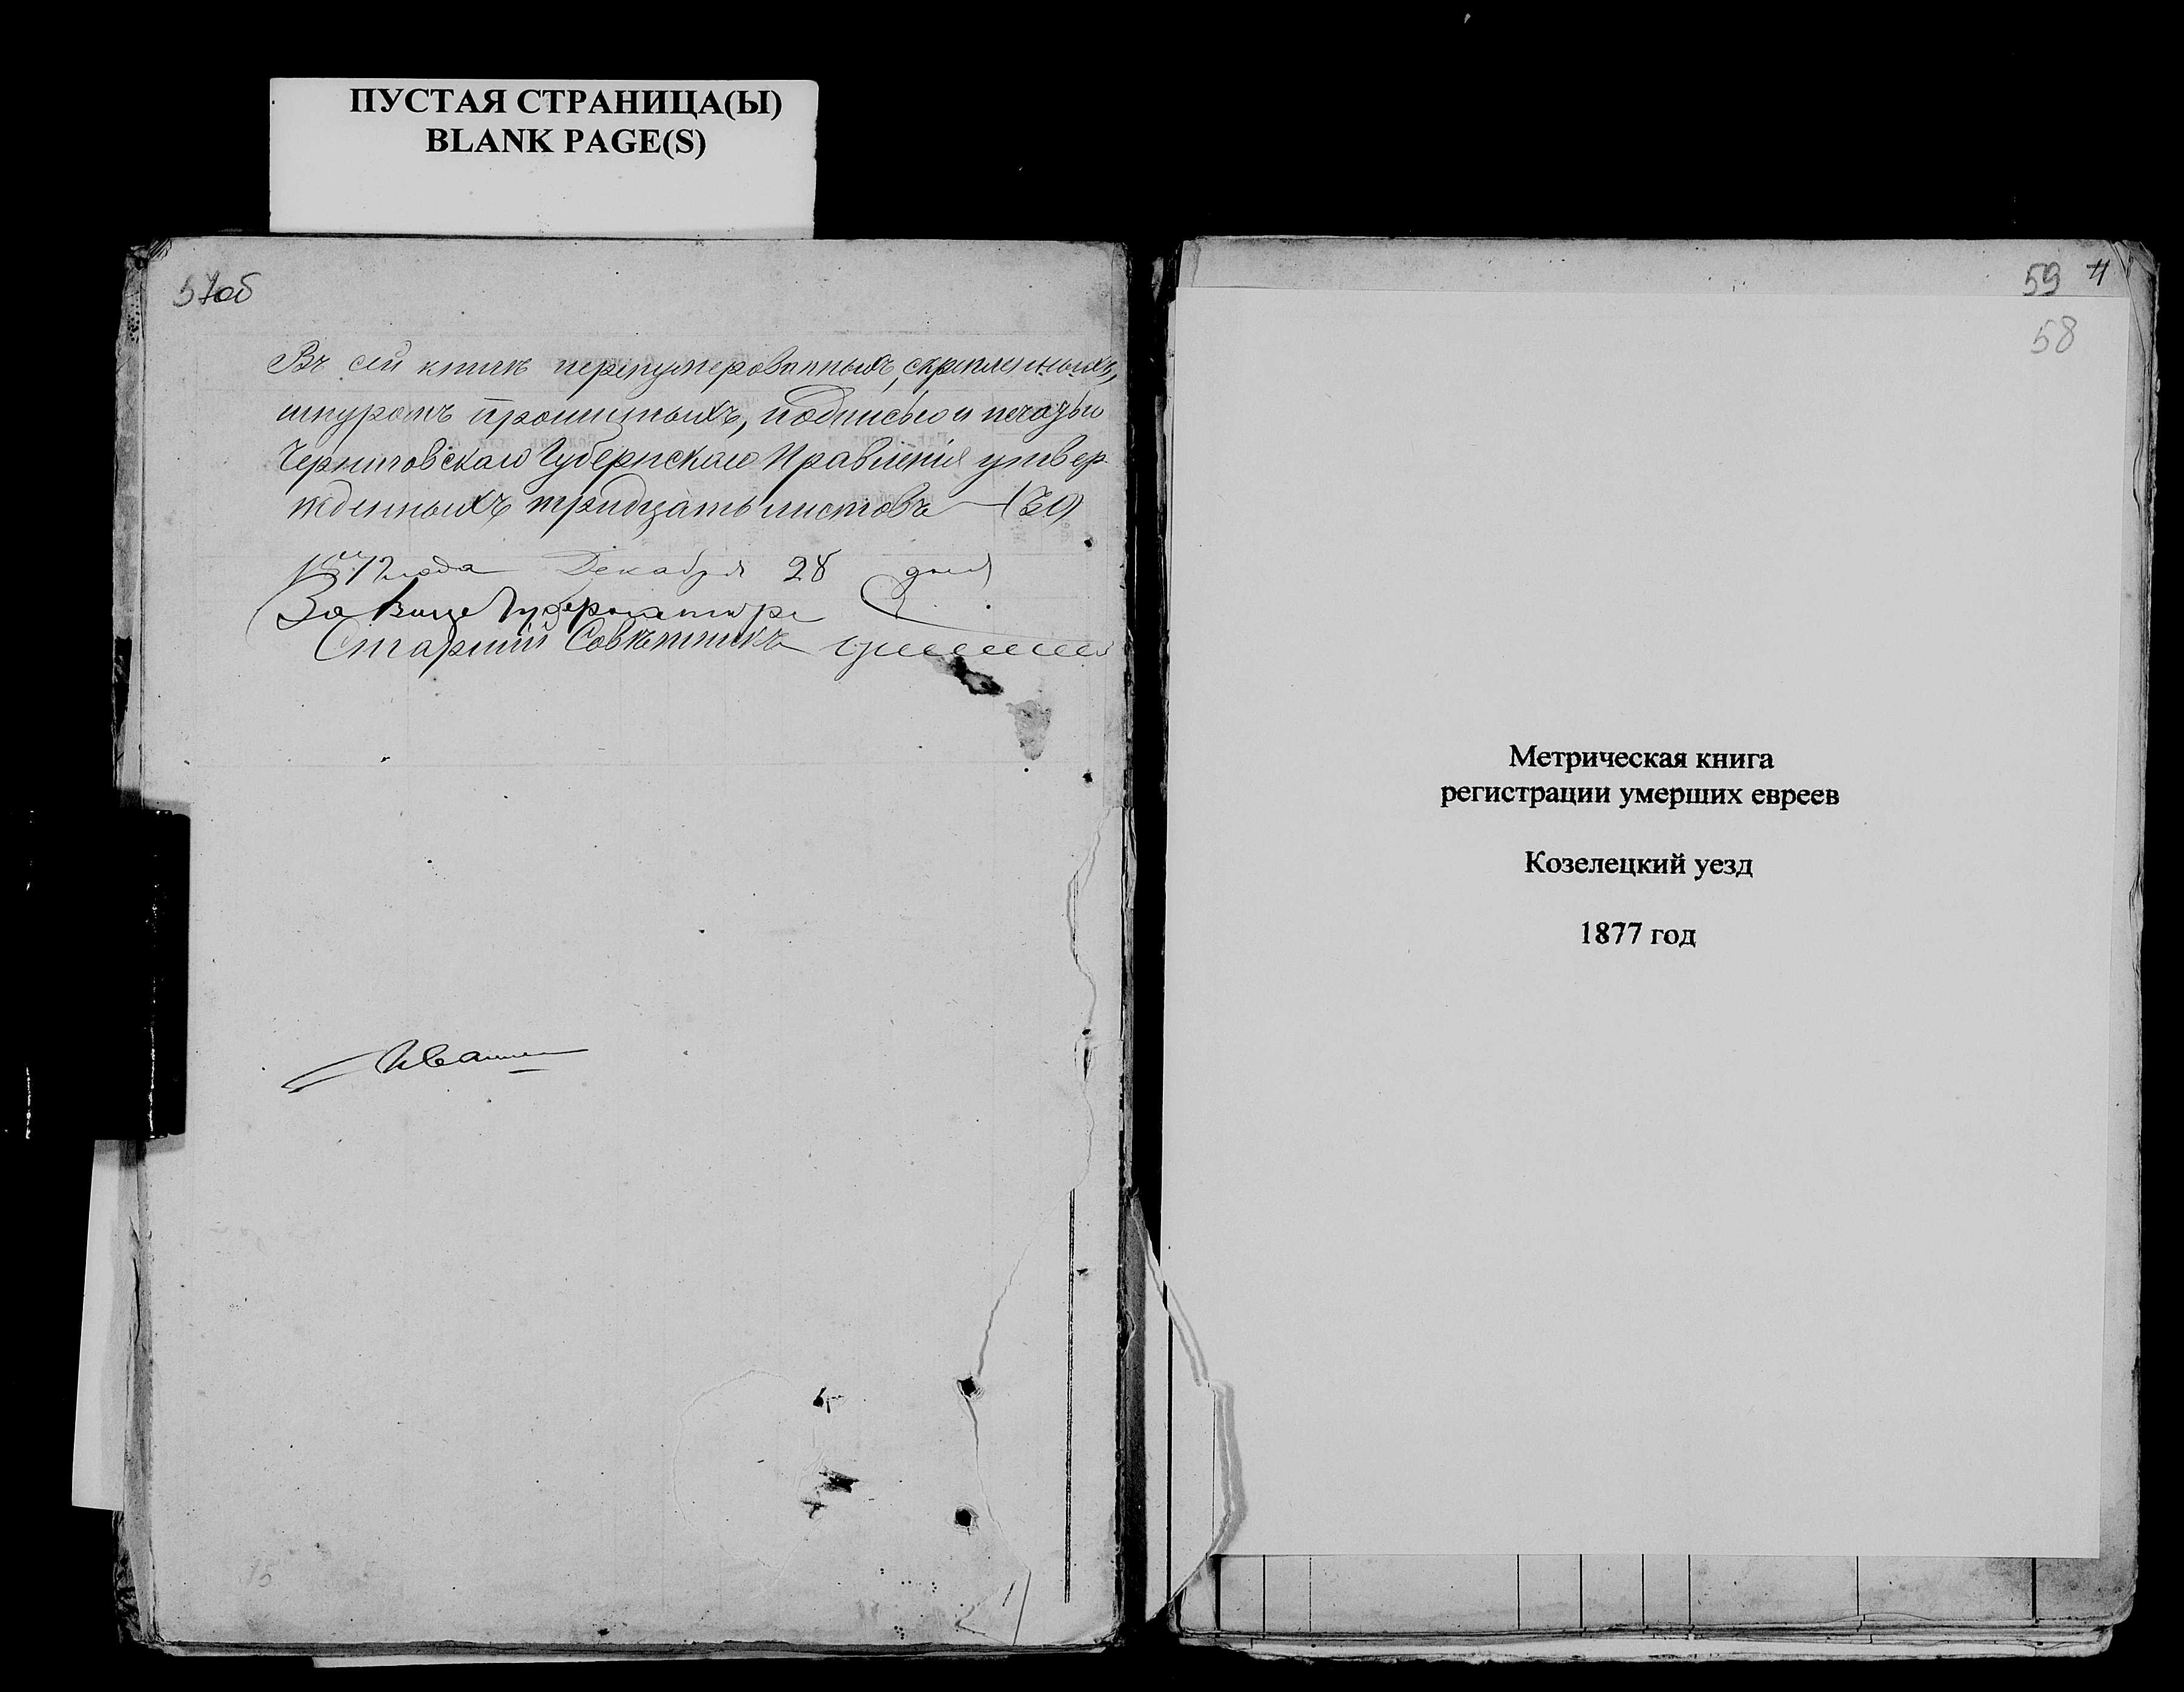 ПУСТАЯ СТРАНИЦА(Ы)
BLANK PAGE(S)
57об
Въ сей книгѣ перенумерованныхъ, скрепленныхъ,
шнуромъ прошитыхъ, подписью и печатью
Черниговскаго Губернскаго Правленія утвер-
жденныхъ тридцать листовъ (30)
года Декабря 28 дня
За Вице Губернатора
Старшій Совѣтникъ
59
58
Метрическая книга
регистрации умерших евреев
Козелецкий уезд
1877 год